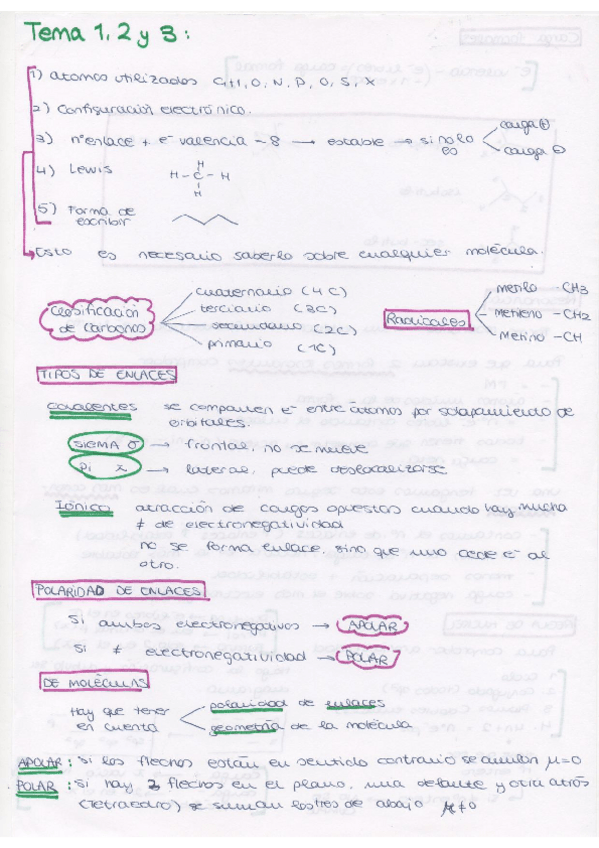 Tema 1, 2 y 3:
1) atomos utilizados C, H, O, N, P, O, S, X
2) Configuración electrónica.
3) nº enlace + e⁻ valencia = 8 → estable → si no lo es
carga ⊕
carga ⊖
4) Lewis
H
H - C - H
H
5) Forma de escribir
Esto es necesario saberlo sobre cualquier molécula.
Clasificación de carbonos
cuaternario (4C)
terciario (3C)
secundario (2C)
primario (1C)
Radicales
metilo - CH3
metileno - CH2
metino - CH
TIPOS DE ENLACES
Covalentes se comparten e⁻ entre atomos por solapamiento de
orbitales.
SIGMA σ → frontal, no se mueve
Pi → lateral, puede deslocalizarse
Iónico atracción de cargas opuestas cuando hay mucha
≠ de electronegatividad
no se forma enlace, sino que uno cede e⁻ al
otro.
POLARIDAD DE ENLACES
Si ambos electronegativos → APOLAR
Si ≠ electronegatividad → POLAR
DE MOLÉCULAS
Hay que tener en cuenta
polaridad de enlaces
geometría de la molécula
APOLAR: si las flechas están en sentido contrario se anulan μ=0
POLAR: Si hay 2 flechas en el plano, una delante y otra atrás
(Tetraedro) se suman los tres de abajo μ≠0